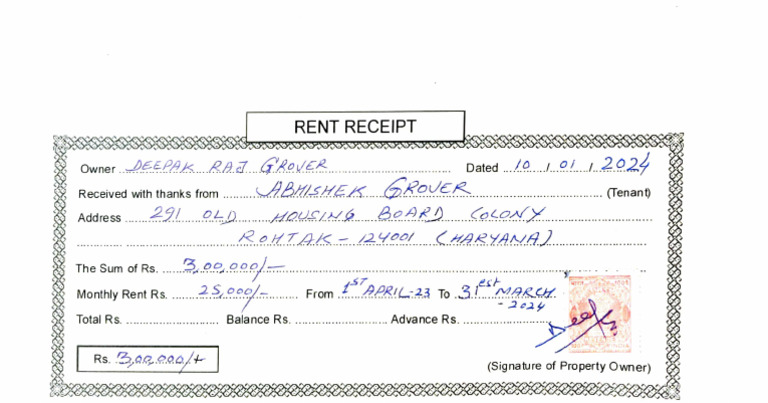 RENT RECEIPT
Owner DEEPAK RAJ GROVER Dated 10 / 01 / 2024
Received with thanks from ABHISHEK GROVER (Tenant)
Address 291 OLD HOUSING BOARD COLONY
ROHTAK - 124001 (HARYANA)
The Sum of Rs. 3,00,000/-
Monthly Rent Rs. 25,000/- From 1ST APRIL-23 To 31est MARCH
- 2024
Total Rs. Balance Rs. Advance Rs.
Rs. 3,00,000/+
(Signature of Property Owner)